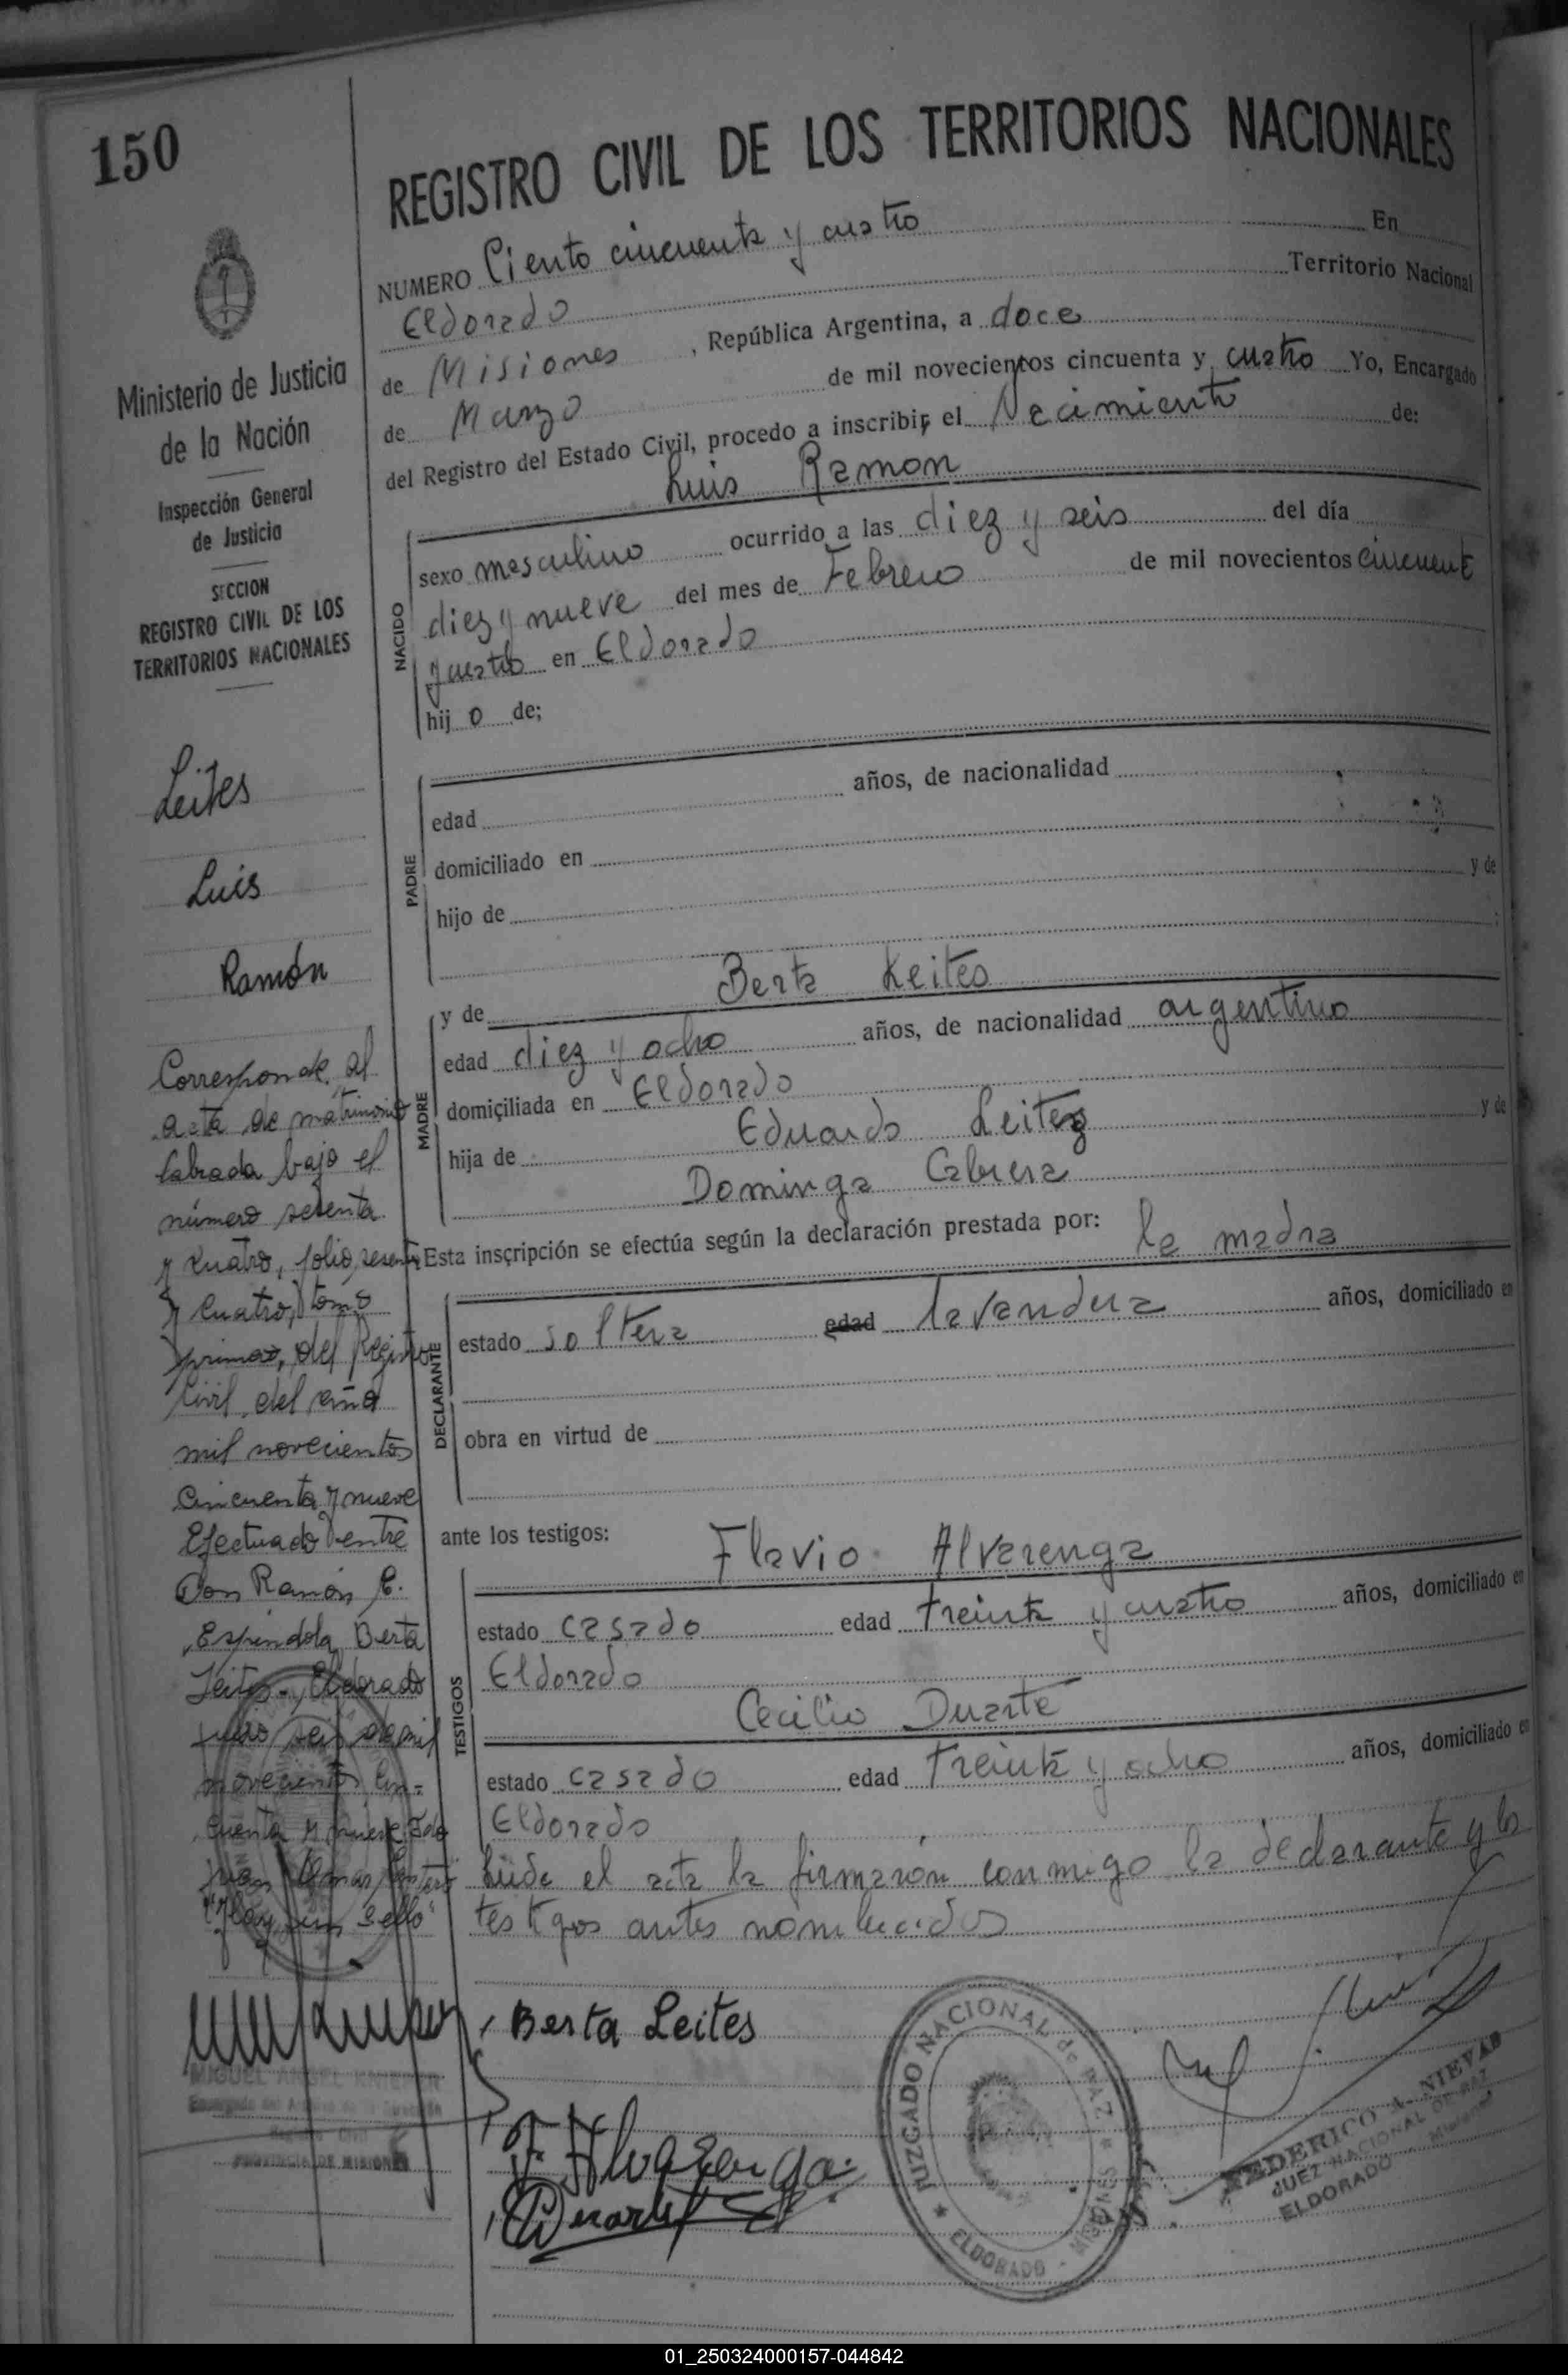 150
REGISTRO CIVIL DE LOS TERRITORIOS NACIONALES
Ministerio de Justicia
de la Nación
Inspección General
de Justicia
SECCION
REGISTRO CIVIL DE LOS
TERRITORIOS NACIONALES
Leites
Luis
Ramón
Corresponde al
acta de matrimonio
labrada bajo el
número setenta
y cuatro, folio sesenta
y cuatro, tomo
primero, del Registro
Civil del año
mil novecientos
cincuenta y nueve
Efectuado entre
Don Ramón C.
Espíndola Berta
Leites.- Eldorado
julio seis de mil
novecientos cin=
cuenta y nueve Fdo
Juan
Hay un sello
MIGUEL ANGEL
Registro Civil
PROVINCIA DE MISIONES
NUMERO Ciento cincuenta y cuatro En
Eldorado Territorio Nacional
de Misiones, República Argentina, a doce
de Marzo de mil novecientos cincuenta y cuatro Yo, Encargado
del Registro del Estado Civil, procedo a inscribir el Nacimiento de:
Luis Ramon
NACIDO
sexo masculino ocurrido a las diez y seis del día
diez y nueve del mes de Febrero de mil novecientos cincuenta
y cuatro en Eldorado
hijo de;
PADRE
edad años, de nacionalidad
domiciliado en
hijo de y de
MADRE
y de Berta Leites
edad diez y ocho años, de nacionalidad argentino
domiciliada en Eldorado
hija de Eduardo Leites y de
Dominga Cabrera
Esta inscripción se efectúa según la declaración prestada por: la madra
DECLARANTE
estado soltera edad lavandera años, domiciliado en
obra en virtud de
ante los testigos: Flavio Alvarenga
TESTIGOS
estado casado edad treinta y cuatro años, domiciliado en
Eldorado
Cecilio Duarte
estado casado edad treinta y ocho años, domiciliado en
Eldorado
Leida el acta la firmarón conmigo la declarante y los
testigos antes nombrados
Berta Leites
F. Alvarenga
CDuarte
JUZGADO NACIONAL de PAZ
ELDORADO - MISIONES
FEDERICO A. NIEVAS
JUEZ NACIONAL DE PAZ
ELDORADO - Misiones
01_250324000157-044842